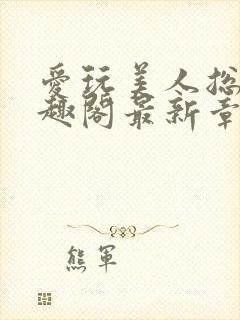 爱玩美人总
趣阁最新章
熊軍